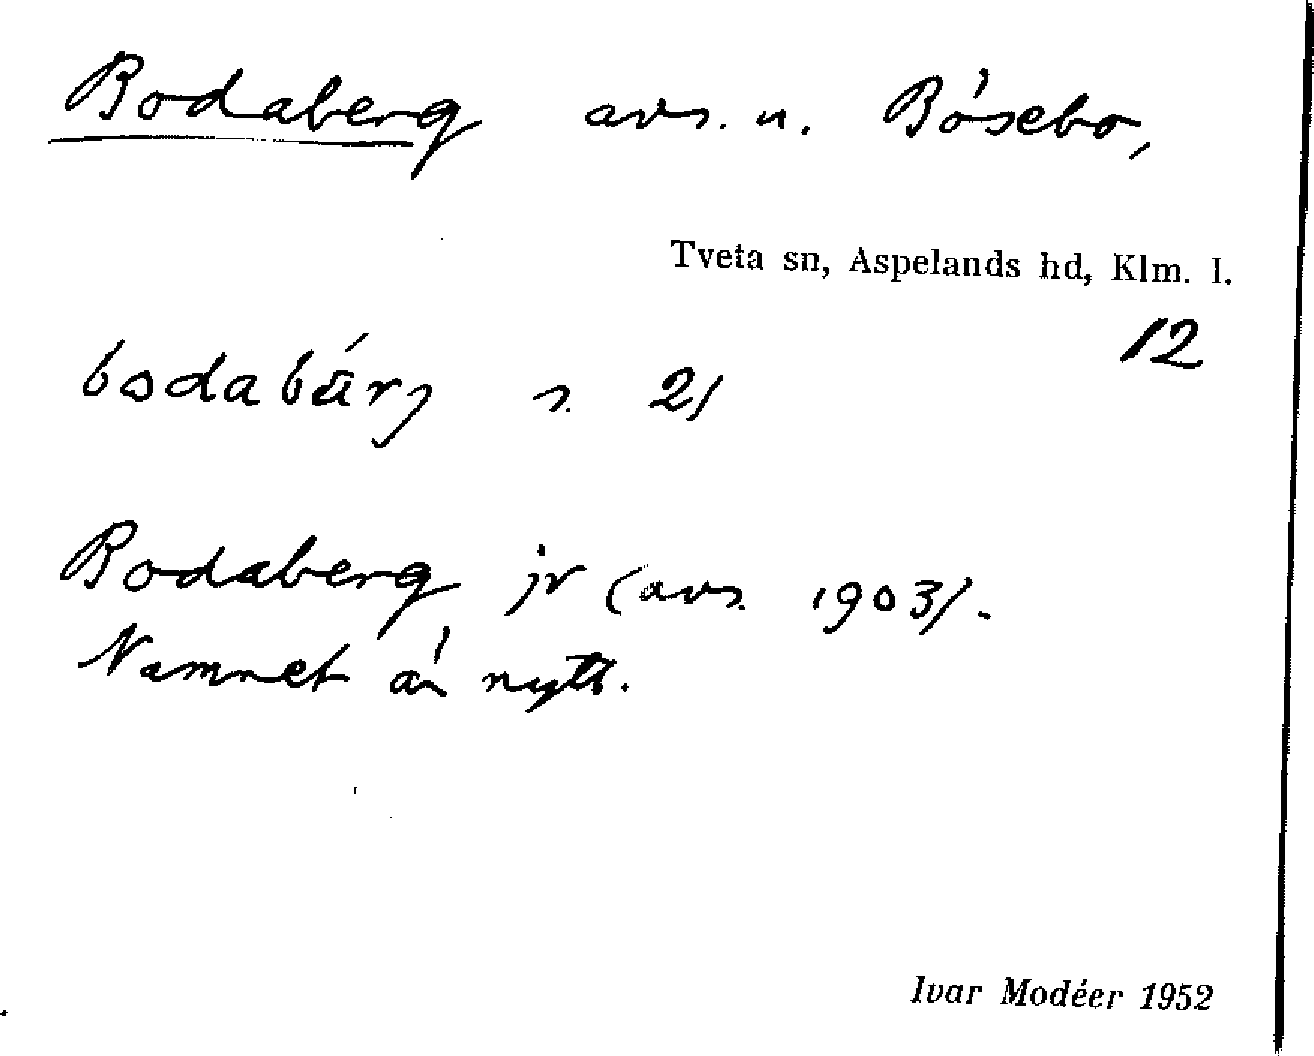 Bodaberg avs. u. Bösebo,
Tveta sn, Aspelands hd, Klm. l.
12
2/
Bodaberg jr (avs. 1903).
Namnet är nytt.
Ivar Modéer 1952